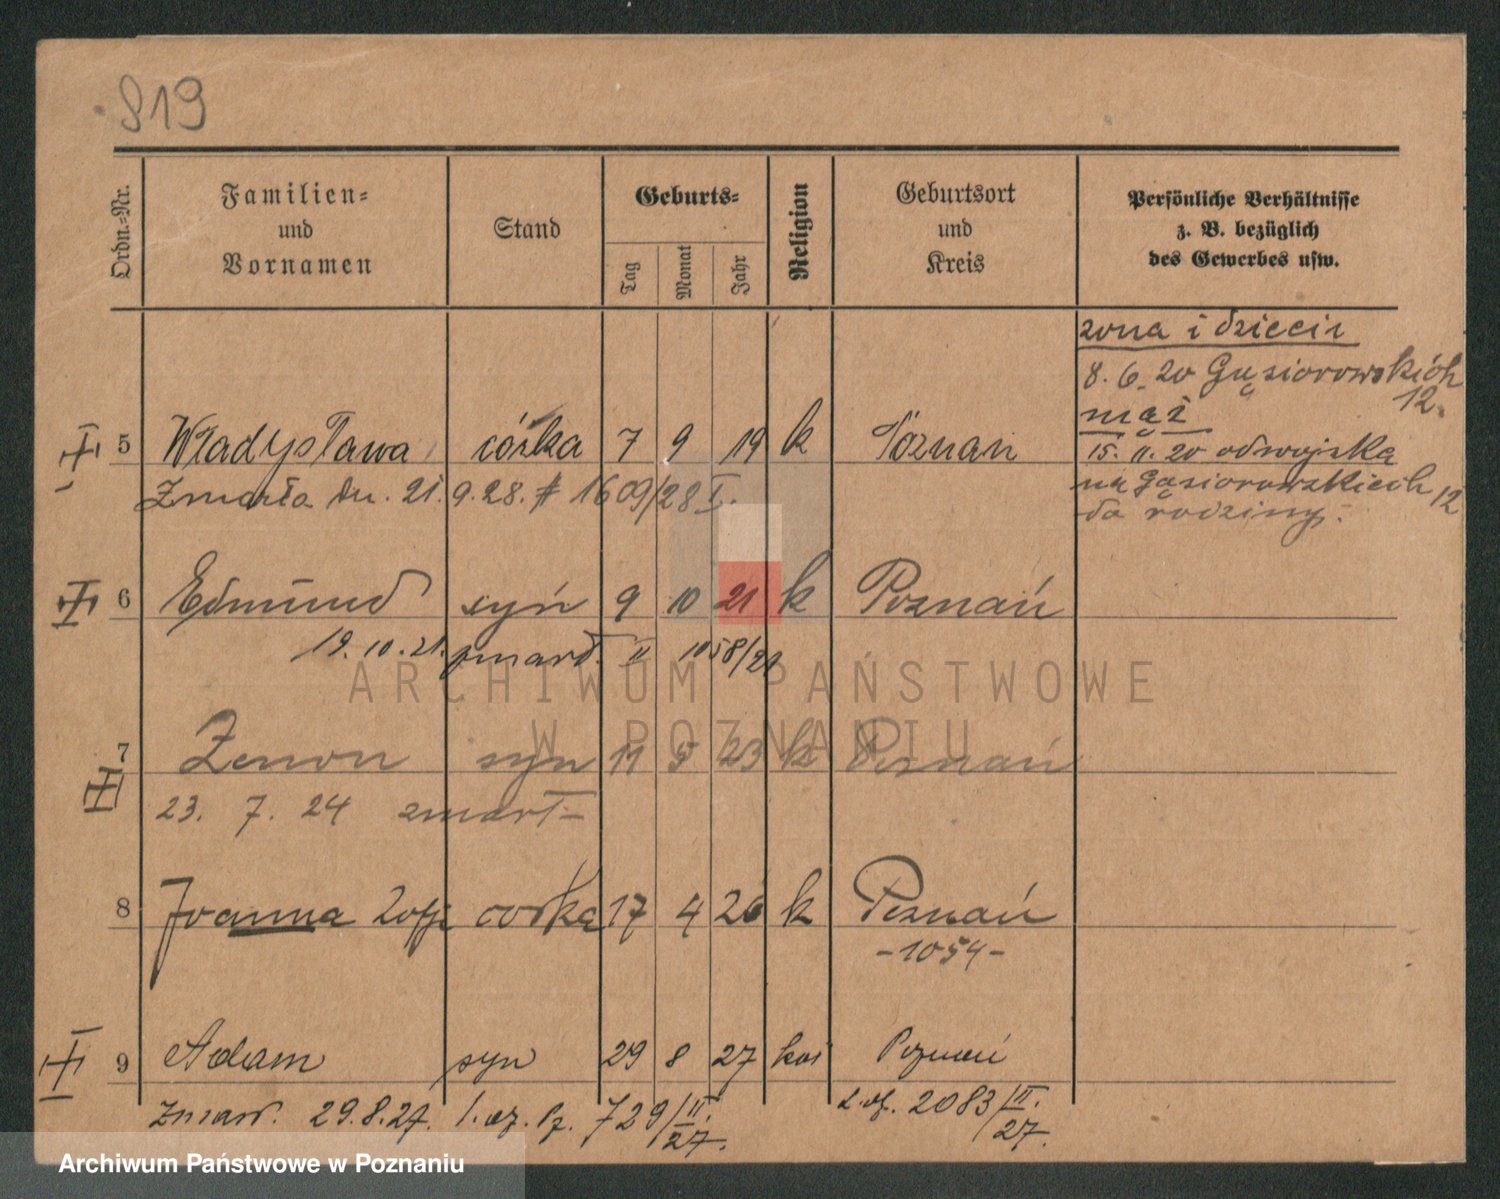 819
Ordn.-Nr.
Familien-
und
Vornamen
Stand
Geburts-
Tag
Monat
Jahr
Religion
Geburtsort
und
Kreis
Persönliche Verhältnisse
z. B. bezüglich
des Gewerbes usw.
żona i dzieci
8. 6. 20 Gąsiorowskich
12.
mąż
15. 11. 20 od wojska
na Gąsiorowskich 12
do rodziny.
5 Władysława córka 7 9 19 k Poznań
Zmarła dn. 21. 9. 28. # 1609/28 I.
6 Edmund syn 9 10 21 k Poznań
19. 10. 21. zmarł. II 1058/21
7 Zenon syn 11 5 23 k Poznań
23. 7. 24 zmarł-
8 Joanna Zofja córka 17 4 26 k Poznań
-1054-
9 Adam syn 29 8 27 kat Poznań
Zmarł. 29.8.27. l. 729/II. 27.
2083/II. 27.
ARCHIWUM PAŃSTWOWE
W POZNANIU
Archiwum Państwowe w Poznaniu